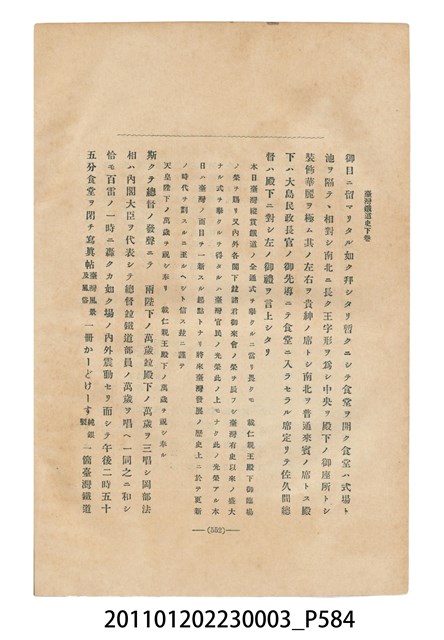 臺灣鐵道史下卷
御目ニ留マリタル如ク拜シタリ暫クニシテ食堂ヲ開ク食堂ハ式場ト
池ヲ隔テヽ相對シ南北ニ長ク王字形ヲ爲シ中央ヲ殿下ノ御座所トシ
裝飾華麗ヲ極ム其ノ左右ヲ貴紳ノ席トシ南北ヲ普通來賓ノ席トス殿
下ハ大島民政長官ノ御先導ニテ食堂ニ入ラセラル席定リテ佐久間總
督ハ殿下ニ對シ左ノ御禮ヲ言上シタリ
本日臺灣縱貫鐵道ノ全通式ヲ擧クルニ當リ長クモ 載仁親王殿下御臨場
ノ榮ヲ賜リ又內外各閣下竝諸君御來會ノ榮ヲ辰フシ臺灣有史以來ノ盛大
ナル式ヲ擧クルヲ得タルハ臺灣官民ノ光榮此ノ上モナク此ノ光榮アル本
日ハ臺灣ノ面目ヲ一新スル起點トナリ將來臺灣發展ノ歷史上ニ於テ更新
ノ時代ヲ劃スルニ至ルヘシト信ス玆ニ謹テ
天皇陛下ノ萬歲ヲ祝シ奉リ 載仁親王殿下ノ萬歲ヲ祝シ奉ル
斯クテ總督ノ發聲ニテ 兩陛下ノ萬歲竝殿下ノ萬歲ヲ三唱シ岡部法
相ハ內閣大臣ヲ代表シテ總督竝鐵道部員ノ萬歲ヲ唱ヘ一同之ニ和シ
恰モ百雷ノ一時ニ轟クカ如ク場ノ內外震動セリ而シテ午後二時五十
五分食堂ヲ閉チ寫眞帖臺灣風景及風俗一冊かーどけーす純銀製一箇臺灣鐵道
—(552)—
201101202230003_P584